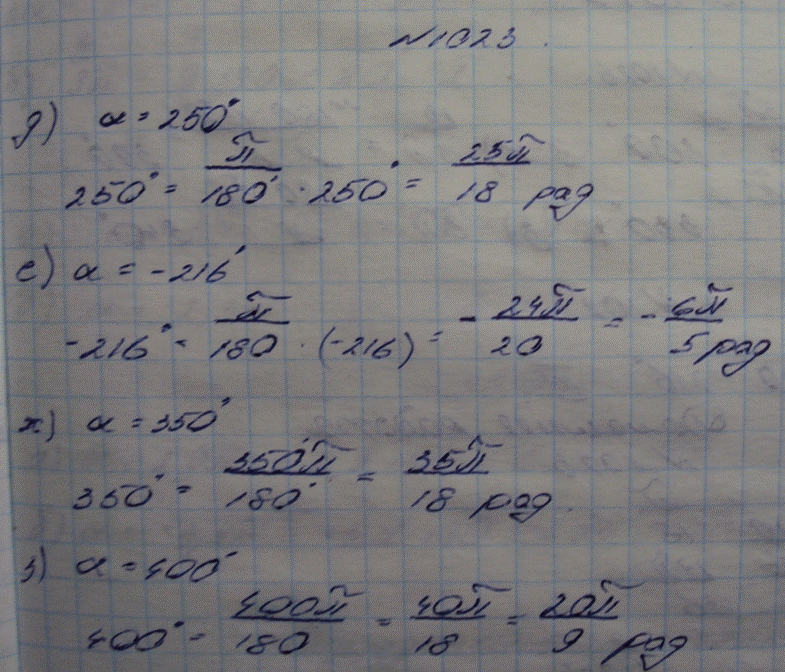 №1023.
д) α = 250°
250° = π/180° · 250° = 25π/18 рад
е) α = -216°
-216° = π/180 · (-216) = - 24π/20 = - 6π/5 рад
ж) α = 350°
350° = 350°π/180° = 35π/18 рад
з) α = 400°
400° = 400π/180 = 40π/18 = 20π/9 рад